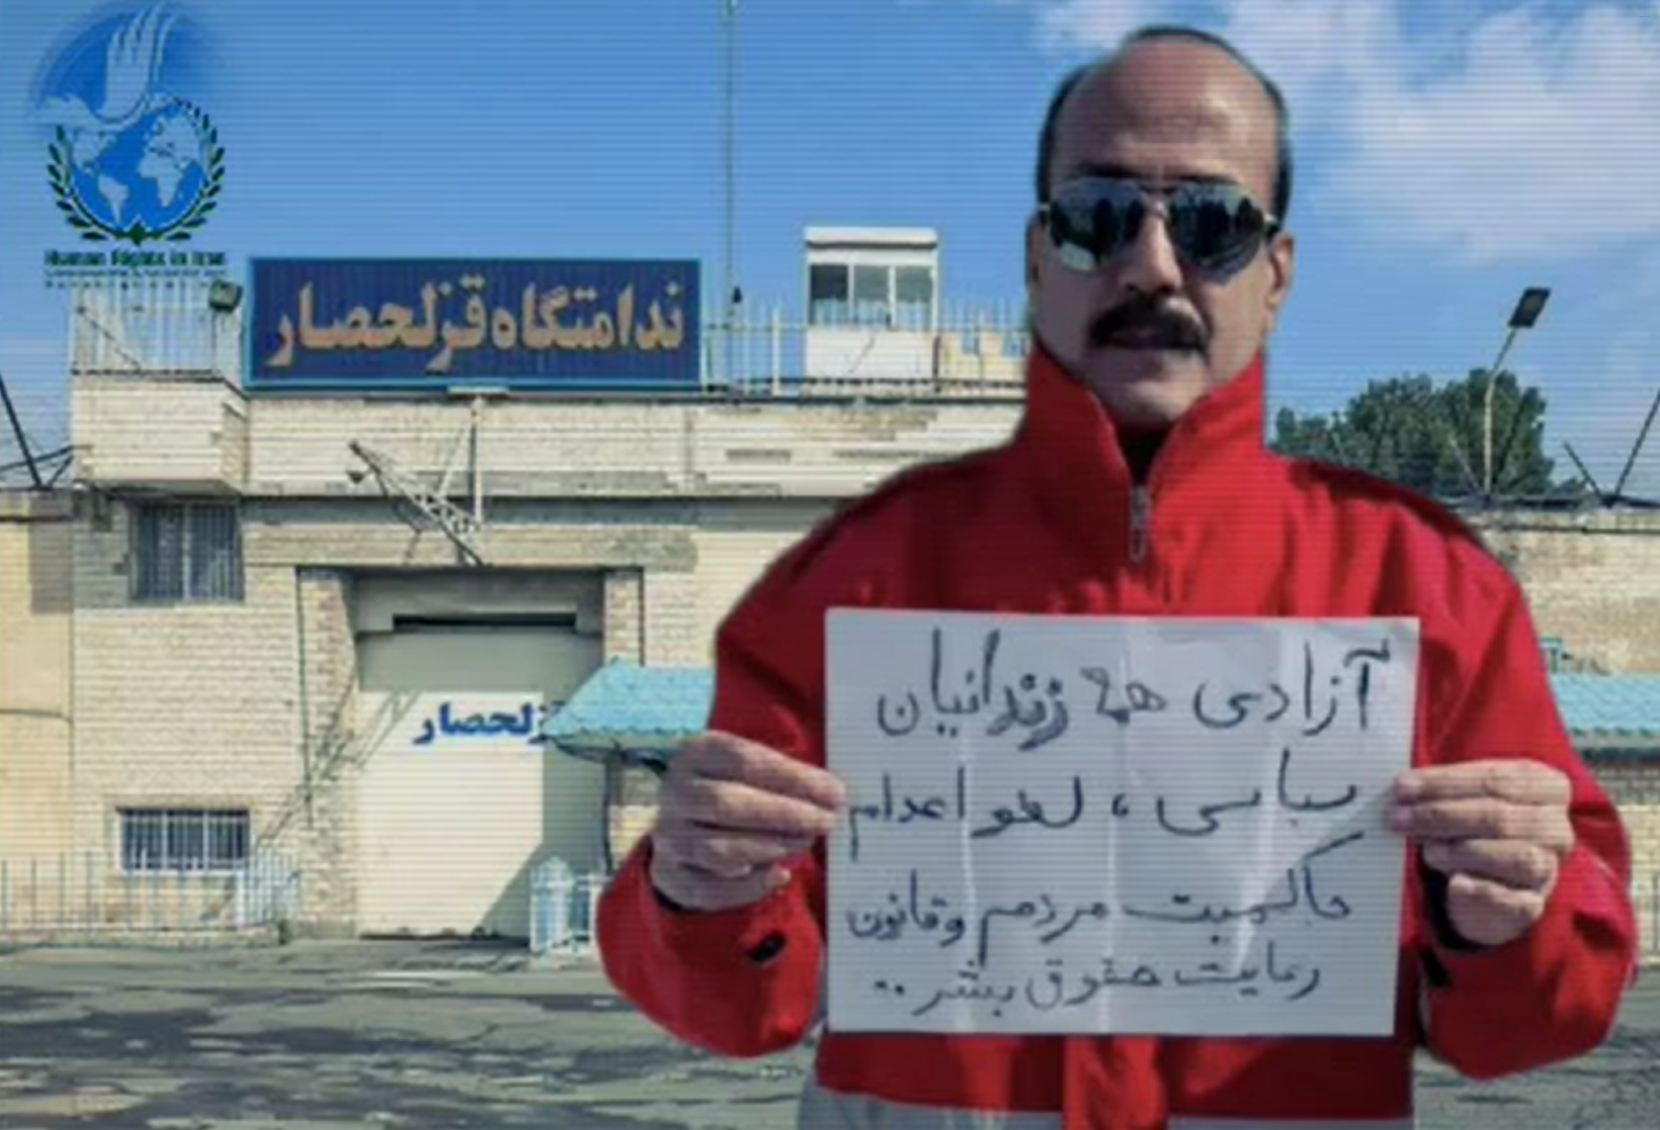 Human Rights in Iran
ندامتگاه قزلحصار
زلحصار
آزادی همه زندانیان
سیاسی ، لغو اعدام
حاکمیت مردم و قانون
رعایت حقوق بشر ..